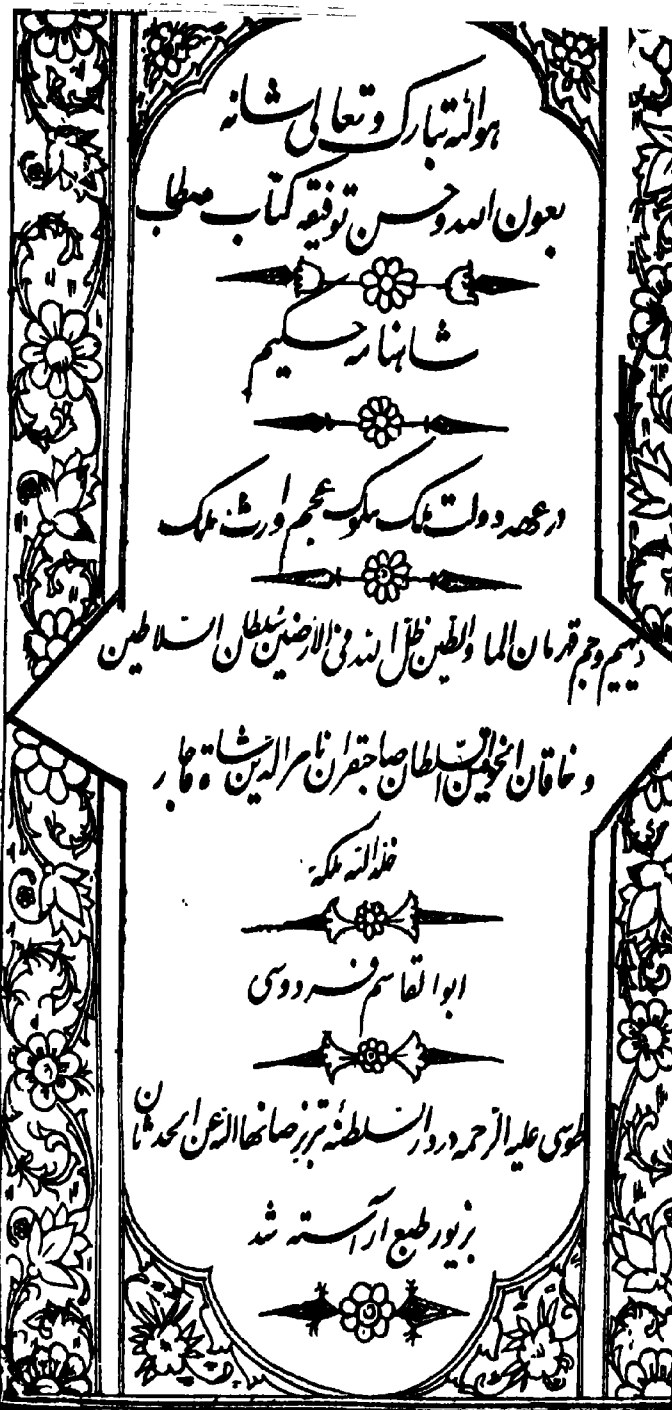 هو الله تبارک و تعالی شانه
بعون الله و حسن توفیقه کتاب مستطاب
شاهنامه حکیم
در عهد دولت ملک ملوک عجم وارث ملک
دیهیم و جم قهرمان الماء و الطین ظل الله فی الارضین سلطان السلاطین
و خاقان الخواقین السلطان صاحبقران ناصرالدین شاه قاجار
خلد الله ملکه
ابوالقاسم فردوسی
طوسی علیه الرحمه در دار السلطنهٔ تبریز صانها الله عن الحدثان
بزیور طبع آراسته شد